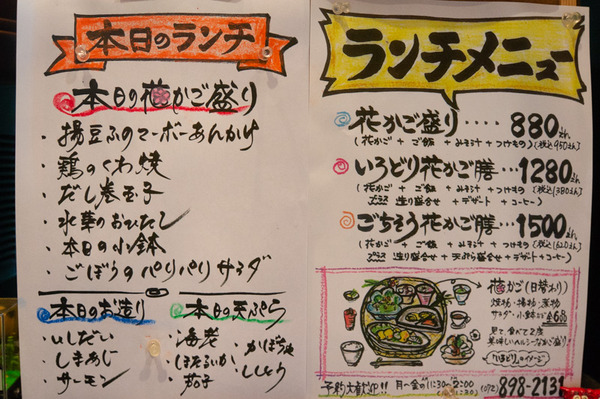 本日のランチ
本日の花かご盛り
・揚豆ふのマーボーあんかけ
・鶏のくわ焼
・だし巻玉子
・水菜のおひたし
・本日の小鉢
・ごぼうのパリパリサラダ
本日のお造り
いしだい
しまあじ
サーモン
本日の天ぷら
海老
ほたるいか
茄子
かぼちゃ
ししとう
ランチメニュー
花かご盛り・・・・880
(花かご + ご飯 + みそ汁 + つけもの) (税込950えん)
いろどり花かご膳・・・1280えん
(花かご + ご飯 + みそ汁 + つけもの (税込1380えん)
プラス 造り盛合せ + デザート + コーヒー)
ごちそう花かご膳・・・1500えん
(花かご + ご飯 + みそ汁 + つけもの (税込1620えん)
プラス 造り盛合せ + 天ぷら盛合せ + デザート + コーヒー)
花かご(日替わり)
焼物・揚物・煮物
サラダ・小鉢など
見て、食べて2度
美味しいヘルシーなかご盛り
予約大歓迎!! 月〜金の11:30〜2:00
(072) 898-2131